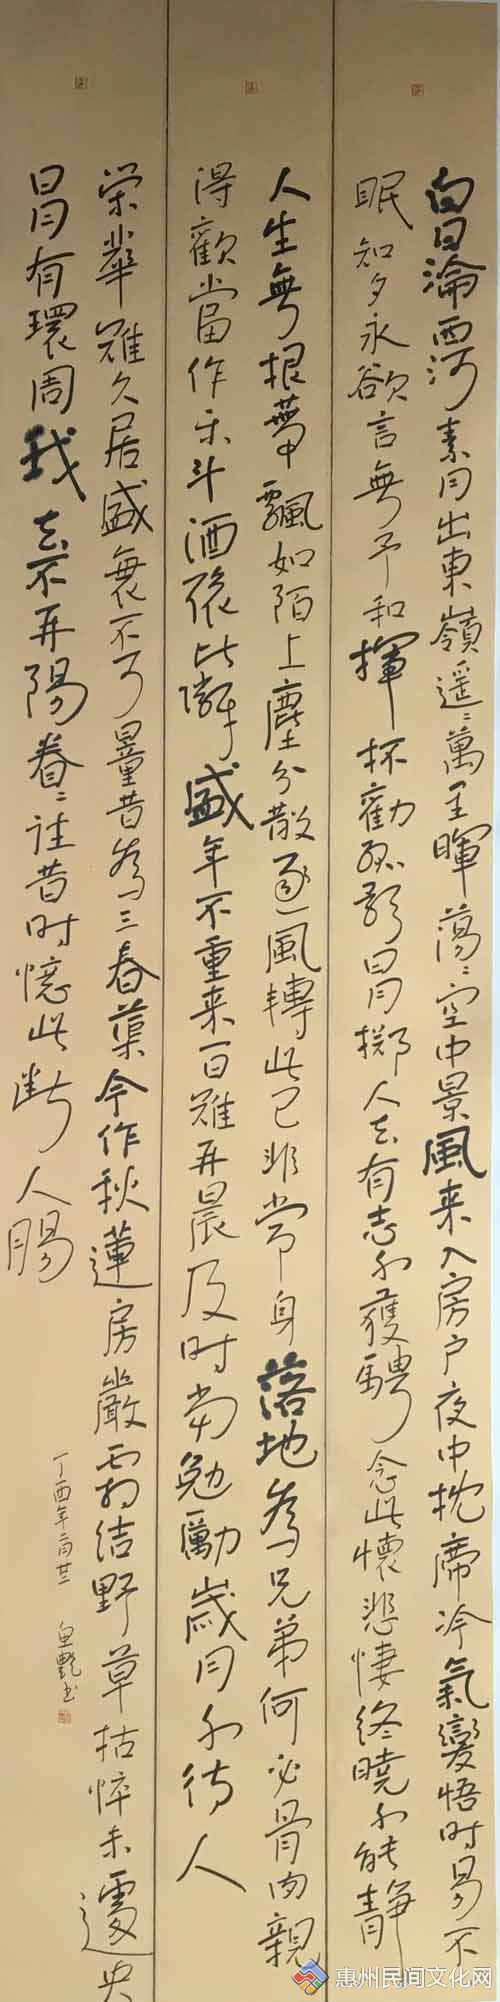 白日淪西河素月出東嶺遥〻萬里暉蕩〻空中景風来入房户夜中枕席冷氣變悟时易不
眠知夕永欲言無予和揮杯勸孤影日月掷人去有志不獲騁念此懷悲悽终曉不能静
人生無根蒂飄如陌上塵分散逐風轉此已非常身落地為兄弟何必骨肉親
得歡當作乐斗酒聚比鄰盛年不重来一日難再晨及时当勉勵歲月不待人
荣華難久居盛衰不可量昔為三春蕖今作秋蓮房嚴霜结野草枯悴未遽央
日月有環周我去不再陽眷〻往昔时憶此断人腸
丁酉年二月廿三 艷书
惠州民间文化网